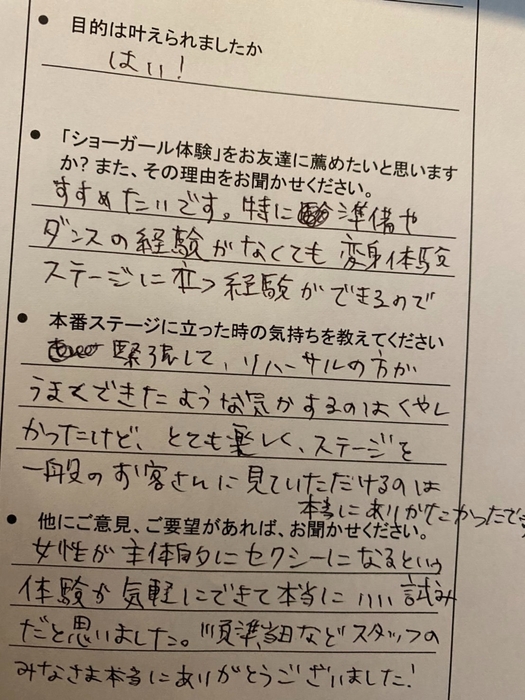 ● 目的は叶えられましたか
はい！
● 「ショーガール体験」をお友達に薦めたいと思います
か? また、その理由をお聞かせください。
すすめたいです。特に準備や
ダンスの経験がなくても変身体験
ステージに立つ経験ができるので
● 本番ステージに立った時の気持ちを教えてください
緊張して、リハーサルの方が
うまくできたような気がするのはくやし
かったけど、とても楽しく、ステージを
一般のお客さんに見ていただけるのは
本当にありがたかったです
● 他にご意見、ご要望があれば、お聞かせください。
女性が主体的にセクシーになるという
体験が気軽にできて本当にいい試み
だと思いました。など スタッフの
みなさま本当にありがとうございました！